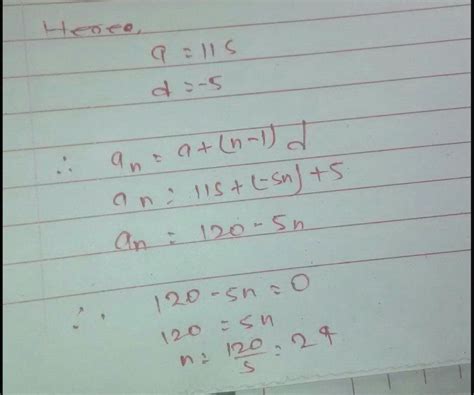 Hence,
a = 115
d = -5
∴ an = a + (n-1) d
an = 115 + (-5n) + 5
an = 120 - 5n
∴ 120 - 5n = 0
120 = 5n
n = 120/5 = 24